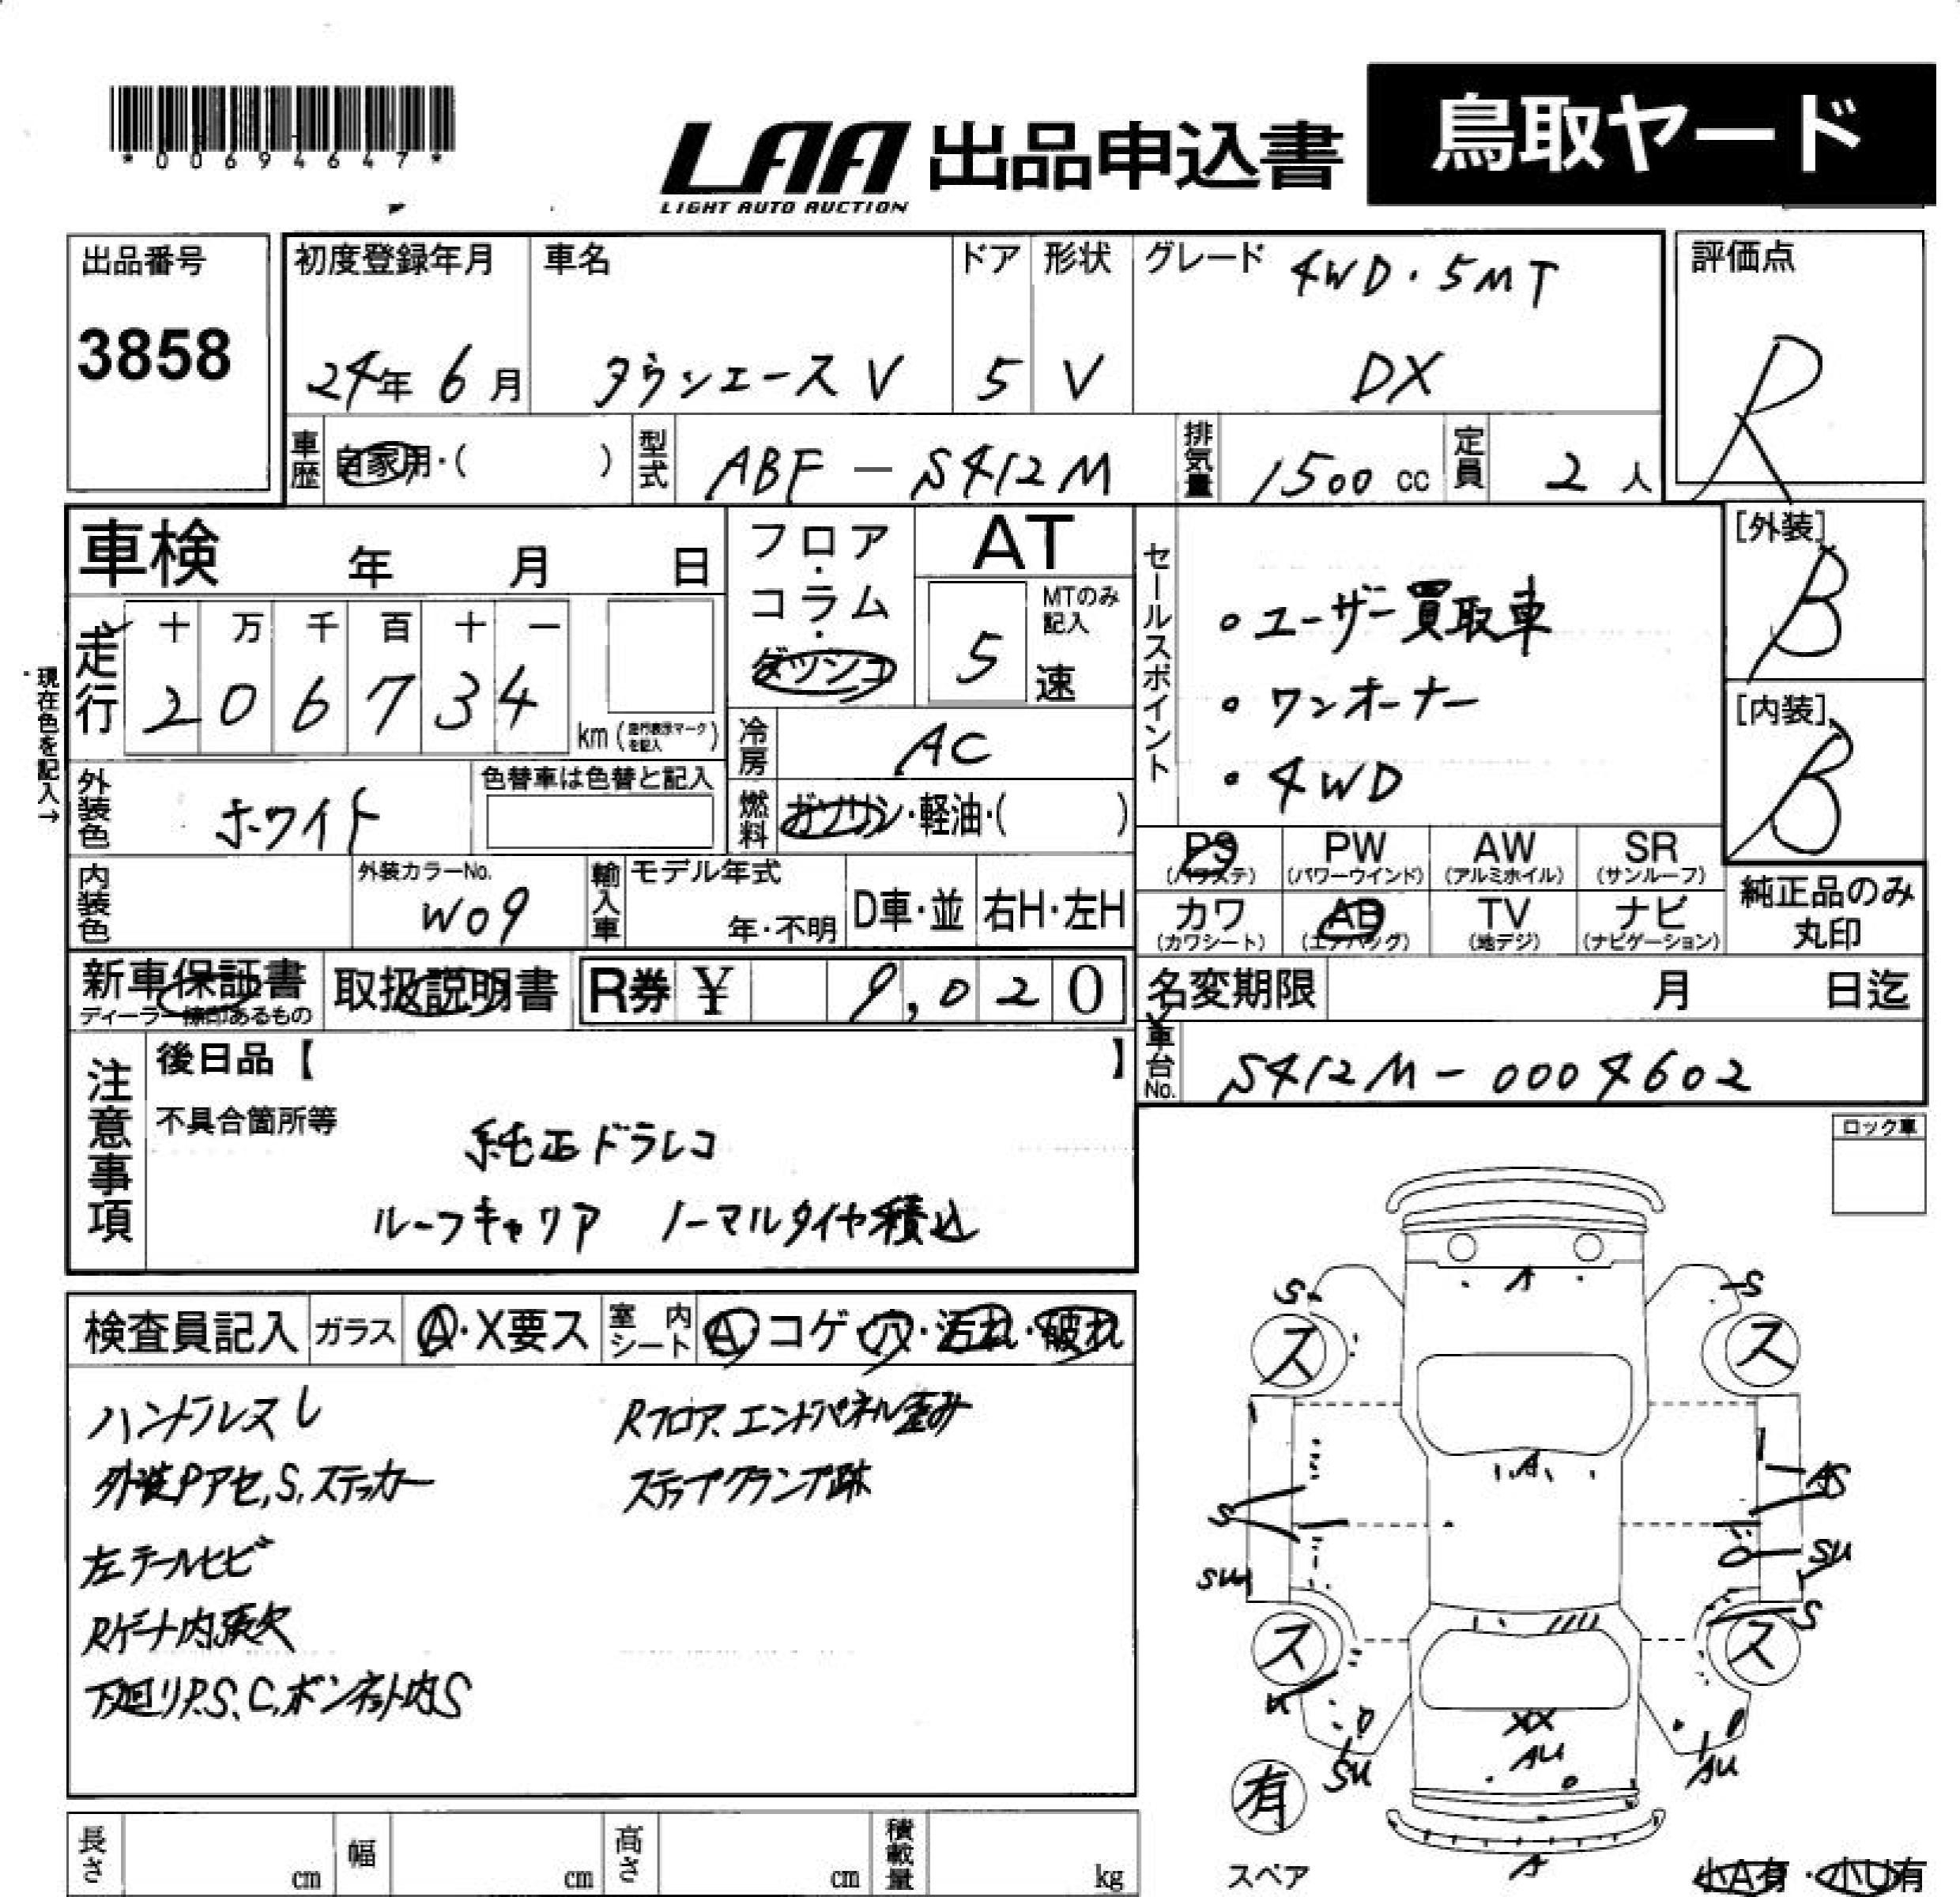 *00694647*
LAA 出品申込書 鳥取ヤード
LIGHT AUTO AUCTION
出品番号 初度登録年月 車名 ドア 形状 グレード 4WD・5MT 評価点
3858 24年 6月 タウンエース V 5 V DX R
車歴 自家用・( ) 型式 ABF-S412M 排気量 1500 cc 定員 2人
車検 年 月 日 フロア・コラム・ダッシュ AT セールスポイント [外装]
B
現在色を記入→
走行 十 万 千 百 十 一 5 MTのみ記入 速 ・ユーザー買取車
2 0 6 7 3 4 km (走行表示マークを記入) ・ワンオーナー [内装]
冷房 AC ・4WD B
外装色 ホワイト 色替車は色替と記入 燃料 ガソリン・軽油・( )
PS (パワステ) PW (パワーウインド) AW (アルミホイル) SR (サンルーフ)
内装色 外装カラーNo. W09 輸入車 モデル年式 年・不明 D車・並 右H・左H
カワ (カワシート) AB (エアバッグ) TV (地デジ) ナビ (ナビゲーション) 純正品のみ丸印
新車保証書 ディーラー検印あるもの 取扱説明書 R券 ¥ 9,020 名変期限 月 日迄
車台No. S412M-0004602
注意事項 後日品【 】
不具合箇所等
純正ドラレコ
ルーフキャリア ノーマルタイヤ積込
ロック車
検査員記入 ガラス A・X要ス 室内シート A・コゲ・穴・汚れ・破れ
ハンドルスレ Rフロア、エンドパネル歪み
外装Pアセ,S,ステッカー ステップクランプ跡
左テールヒビ
Rゲート内張欠
下廻りP.S、C,ボンネット内S
A
S S
ス ス
A
S AS
SU SU
S
ス ス
U
XX
SU AU AU
有
A
スペア 小A有・小U有
長さ cm 幅 cm 高さ cm 積載量 kg